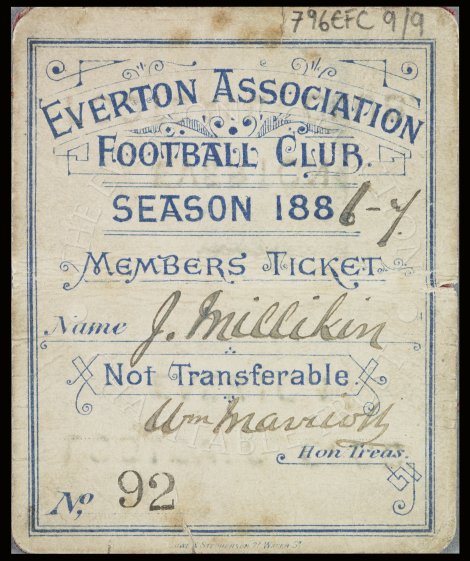 796EFC 9/9
EVERTON ASSOCIATION
FOOTBALL CLUB.
SEASON 1886-7.
MEMBERS TICKET
Name J. Millikin
Not Transferable.
Wm Marriott
Hon Treas.
No, 92